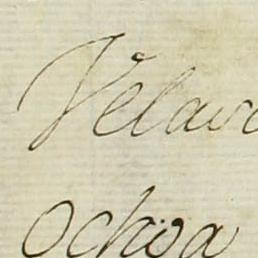 Velav
ochoa